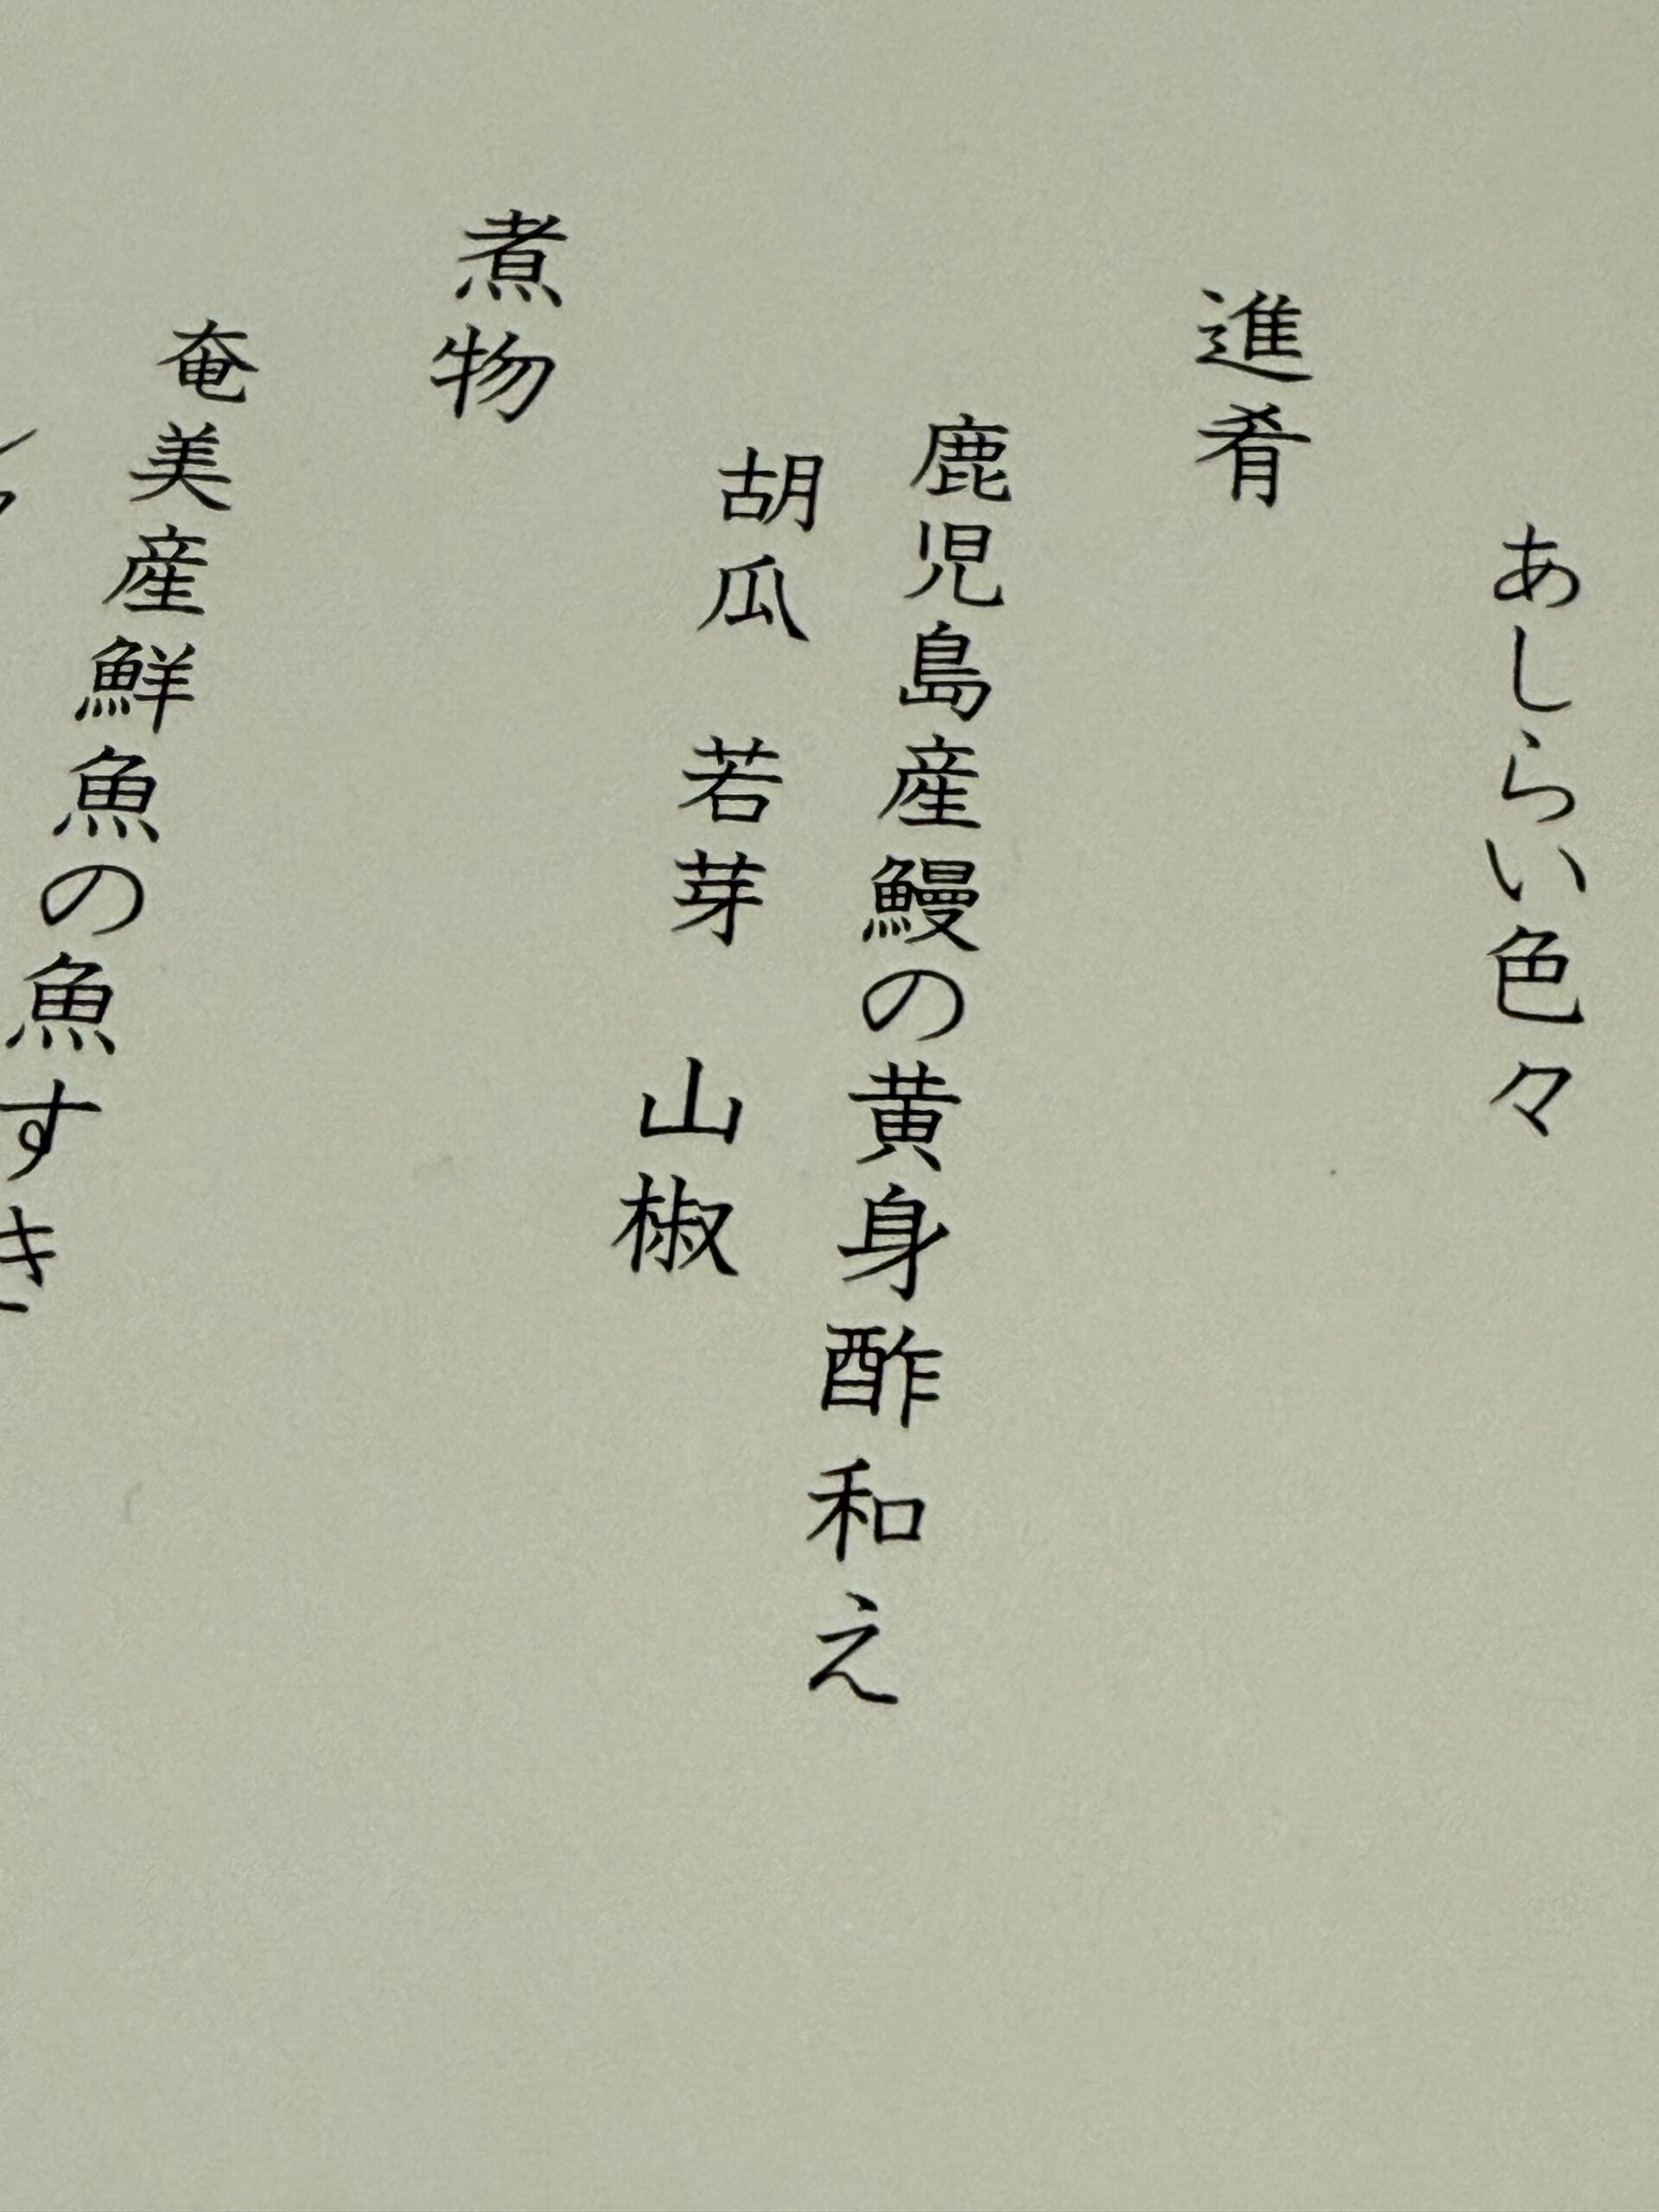 あしらい色々
進肴
鹿児島産鰻の黄身酢和え
胡瓜　若芽　山椒
煮物
奄美産鮮魚の魚すき